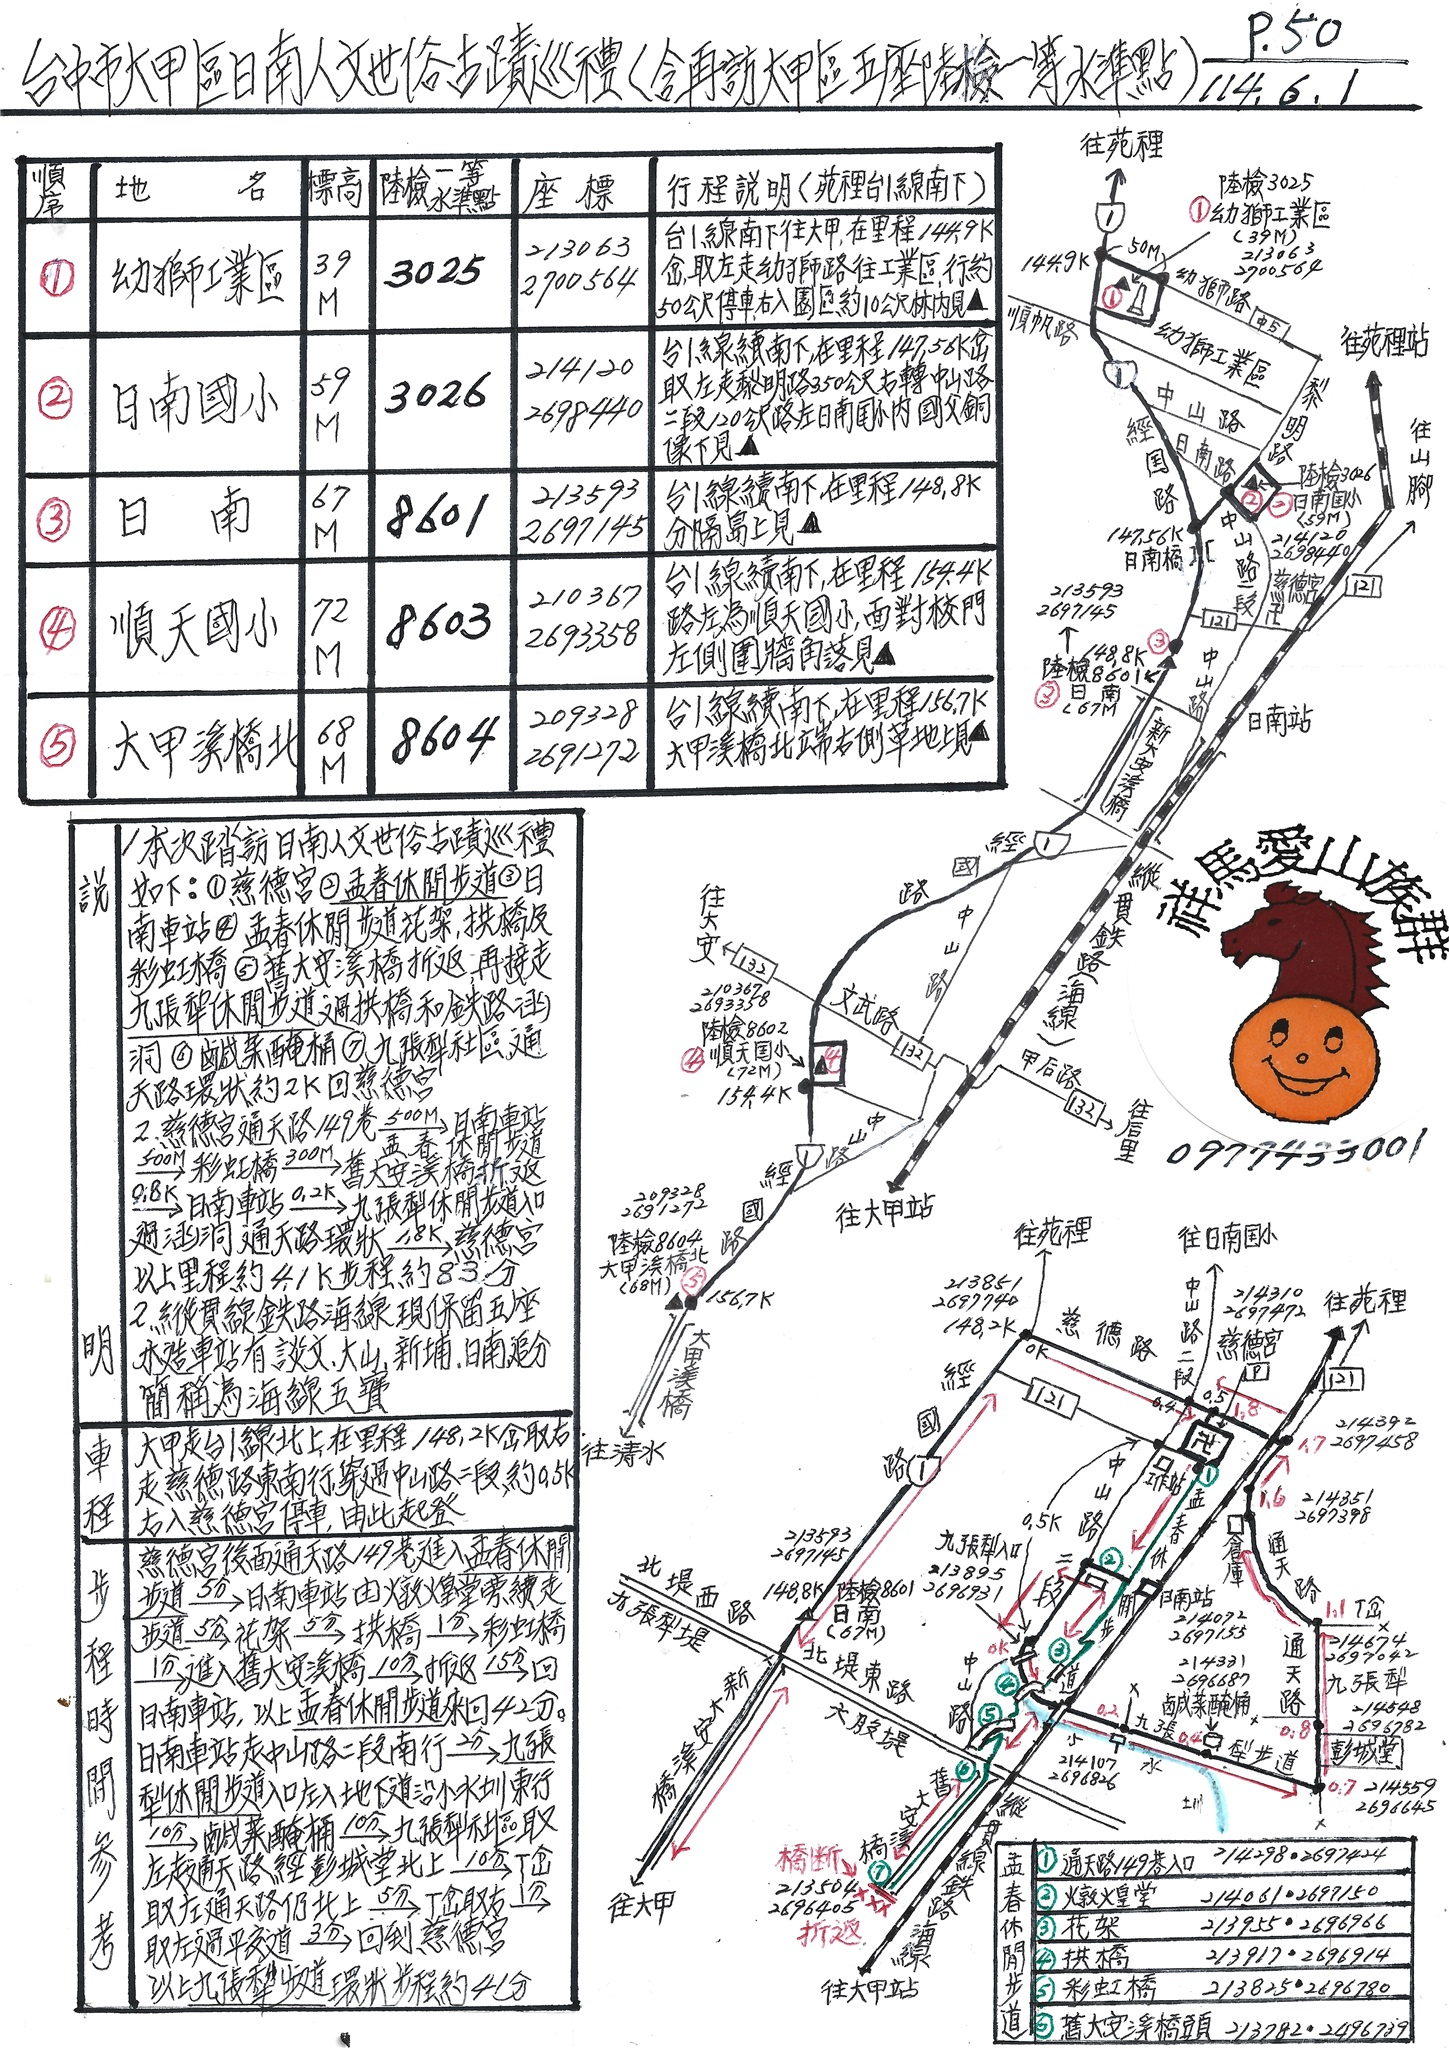 P.50
台中市大甲區日南人文世俗古蹟巡禮(含再訪大甲區五座陸檢一等水準點)
114.6.1
順序 地名 標高 陸檢一等水準點 座標 行程說明(苑裡台1線南下)
① 幼獅工業區 39M 3025 213063 2700564
台1線南下往大甲,在里程144.9K
岔,取左走幼獅路往工業區,行約
50公尺停車,右入園區約10公尺林內見▲
② 日南國小 59M 3026 214120 2698440
台1線續南下,在里程147.56K岔
取左走黎明路350公尺右轉中山路
二段120公尺路左日南国小內國父銅
像下見▲
③ 日南 67M 8601 213593 2697145
台1線續南下,在里程148.8K
分隔島上見▲
④ 順天國小 72M 8603 210367 2693358
台1線續南下,在里程154.4K
路左為順天國小,面對校門
左側圍牆角落見▲
⑤ 大甲溪橋北 68M 8604 209328 2691272
台1線續南下,在里程156.7K
大甲溪橋北端右側草地上見▲
說明
1本次踏訪日南人文世俗古蹟巡禮
如下:①慈德宮②孟春休閒步道③日
南車站④孟春休閒步道花架,拱橋及
彩虹橋⑤舊大安溪橋折返,再接走
九張犁休閒步道過拱橋和鉄路涵
洞⑥鹹菜醃桶⑦九張犁社區通
天路環狀約2K回慈德宮
2.慈德宮通天路149巷 500M→日南車站
孟春休閒步道
500M→彩虹橋 300M→舊大安溪橋折返
0.8K→日南車站 0.2K→九張犁休閒步道入口
過涵洞通天路環狀 1.8K→慈德宮
以上里程約4.1K步程約83分
2.縱貫線鉄路海線現保留五座
木造車站有談文、大山、新埔、日南、追分
簡稱為海線五寶
車程
大甲走台1線北上,在里程148.2K岔取右
走慈德路東南行,穿過中山路二段約0.5K
右入慈德宮停車,由此起登
步程時間參考
慈德宮後面通天路149巷進入孟春休閒
步道 5分→日南車站由火燉火皇堂旁續走
步道 5分→花架 5分→拱橋 1分→彩虹橋
1分→進入舊大安溪橋 10分→折返 15分→回
日南車站,以上孟春休閒步道來回42分。
日南車站走中山路二段南行 2分→九張
犁休閒步道入口左入地下道沿小水圳東行
10分→鹹菜醃桶 10分→九張犁社區取
左走通天路經彭城堂北上 10分→T岔
取左通天路仍北上 5分→T岔取右 1分→
取左過平交道 3分→回到慈德宮
以上九張犁步道環狀步程約41分
往苑裡
陸檢3025
①幼獅工業區
(39M)
213063
2700564
1
50M
144.9K
①
幼獅路
中5
順帆路
幼獅工業區
往苑裡站
1
中山路
日南路
黎明路
經国路
往山腳
陸檢3026
② 日南国小
(59M)
214120
2698440
147.56K
日南橋
中山路二段
慈德宮
卍
121
121
213593
2697145
③
148.8K
陸檢8601K
③日南
(67M
中山路
新大安溪橋
日南站
經國路
1
中山路
縱貫鉄路(海線)
往大安
132
文武路
132
甲后路
132
往后里
210367
2693358
陸檢8602
④順天国小
(72M)
④
154.4K
中山路
1
經國路
往大甲站
209328
2691272
陸檢8604
大甲溪橋北
(68M)
⑤
156.7K
大甲溪橋
往清水
祥馬愛山族群
0977433001
往苑裡
213851
2697740
148.2K
0K
慈德路
往日南国小
中山路二段
214310
2697472
慈德宮
P
往苑裡
121
經國路
121
0.4
0.5
1.8
卍
①
工作站
1.7
214392
2697458
1
中山路二段
0.5K
孟春休閒步道
1.6
214351
2697398
倉庫
通天路
213593
2697145
148.8K
陸檢8601
日南
(67M)
九張犁入口
213895
2696931
②
日南站
214072
2697155
1.1 T岔
214674
2697042
北堤西路
九張犁堤
北堤東路
六股堤
0K
③
④
⑤
⑥
中山路
214331
2696687
鹹菜醃桶
通天路
九張犁
214548
2696782
彭城堂
0.8
0.2
0.4
九張犁步道
小水圳
214107
2696826
0.7
214559
2696645
新大安溪橋
往大甲
舊大安溪橋
⑦
橋斷
213504
2696405
折返
縱貫線鉄路海線
往大甲站
孟春休閒步道
① 通天路149巷入口 214298•2697424
② 火燉火皇堂 214061•2697150
③ 花架 213955•2696966
④ 拱橋 213917•2696914
⑤ 彩虹橋 213825•2696780
⑥ 舊大安溪橋頭 213782•2496739